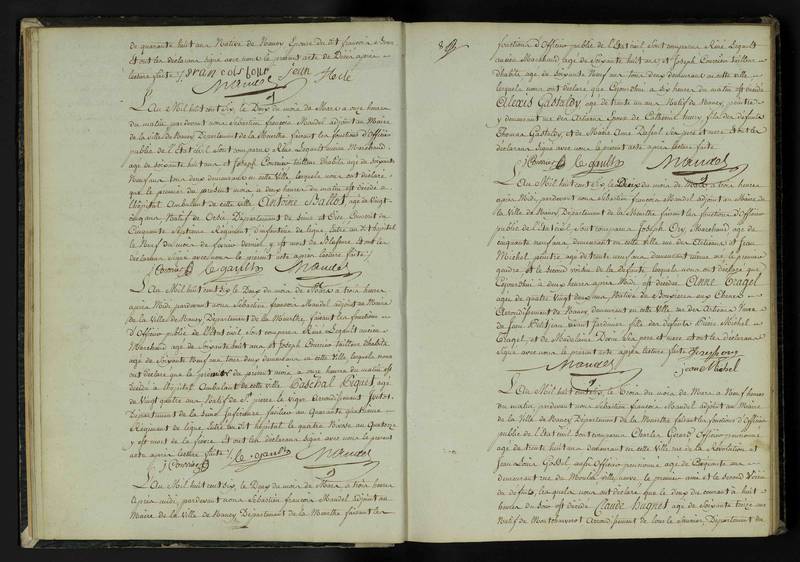 de quarante huit ans Native de Nancy Epouse du dit françois
et ont les declarans signé avec nous le présent acte de Décès après
lecture faite ./. francois four Jean
Mandel
L'An Mil huit cent six, le Deux du mois de Mars a onze heures
du matin, pardevant nous Sébastien françois Mandel adjoint au Maire
de la Ville de Nancy Département de la Meurthe faisant les fonctions d'Officier
public de l'Etat Civil sont comparus René Legault ancien Marchand,
agé de soixante huit ans et Joseph Cornier tailleur d'habits agé de soixante
Neuf ans tous deux demeurans en cette Ville lesquels nous ont déclaré
que le premier du present mois a deux heures du matin est décédé a
l'hôpital Ambulant de cette ville Antoine Ballot, agé de vingt
cinq ans, Natif de Département de Seine et Oise,
Cinquante Septieme Régiment d'infanterie de ligne, entré au dit hopital
le Neuf du mois de fevrier dernier y est mort de et ont les
declarans signé avec nous le present acte après lecture faite ./.
J Cornier Legault Mandel
L'An Mil huit cent six le Deux du mois de Mars a trois heures
après Midi pardevant nous Sébastien françois Mandel adjoint au Maire
de la Ville de Nancy Département de la Meurthe, faisant les fonctions
d'Officier public de l'Etat Civil sont comparus René Legault ancien
Marchand agé de soixante huit ans et Joseph Cornier tailleur d'habits
agé de soixante Neuf ans tous deux demeurans en cette Ville lesquels nous
ont déclaré que le premier du present mois a quatre heures du matin est
décédé a l'hopital Ambulant de cette ville Paschal agé
de Vingt quatre ans Natif de St. pierre le Viger Arrondissement
Département de la Seine Inferieure fusilier au Quarante quatrieme
Régiment de ligne, entré au dit hôpital le quatre Nivose an Quatorze
y est mort de la fievre et ont les declarans signé avec nous le present
acte après lecture faite ./.
J Cornier Legault Mandel
L'An Mil huit cent six, le Deux du mois de Mars a trois heures
après midi, pardevant nous Sébastien françois Mandel adjoint au
Maire de la Ville de Nancy Département de la Meurthe faisant les
8
fonctions d'Officier public de l'Etat Civil, sont comparus René Legault
ancien Marchand, agé de soixante huit ans et Joseph Cornier tailleur
d'habits agé de soixante Neuf ans tous deux demeurans en cette ville,
lesquels nous ont déclaré que cejourd'hui a six heures du matin est décédé
Alexis Gastaldy agé de trente un ans Natif de Nancy,
y demeurant rue des Artisans Epoux de Catherine henry fils des défunts
Thomas Gastaldy, et de Marie Anne ses pere et mere et ont les
declarans signé avec nous le present acte après lecture faite
J Cornier Legault Mandel
L'An Mil huit cent six, le Deux du mois de Mars a trois heures
après Midi, pardevant nous Sébastien françois Mandel adjoint au Maire de
la Ville de Nancy Département de la Meurthe faisant les fonctions d'Officier
public de l'Etat Civil, sont comparus Joseph Ory, Marchand, agé de
cinquante neuf ans, demeurant en cette Ville rue des Artisans et Jean
Michel peintre, agé de trente neuf ans, demeurant même rue le premier
gendre, et le second voisin de la defunte, lesquels nous ont déclaré que
cejourd'hui a deux heures après Midi est décédée Anne Tragel
agée de quatre Vingt deux ans, Native de
Arrondissement de Nancy, demeurant en cette ville rue des Artisans Veuve
de Jean vivant Jardinier, fille des defunts Pierre Michel
Tragel, et de Madelaine ses pere et mere et ont les declarans
signé avec nous le présent acte après lecture faite Joseph ory
Mandel jean Michel
L'An Mil huit cent six, le Trois du mois de Mars a Neuf heures
du matin, pardevant nous Sébastien françois Mandel adjoint au Maire
de la Ville de Nancy Département de la Meurthe faisant les fonctions d'Officier
public de l'Etat Civil sont comparus Charles Gerard Officier pensionné,
agé de trente huit ans demeurant en cette Ville rue de la Révolution et
Jean Louis aussi Officier pensionné agé de Cinquante un
demeurant rue du Moulin, ville neuve, le premier ami et le second Voisin
du defunt, lesquels nous ont déclaré que le deux du courant a huit
heures du soir est décédé Claude Hugnet agé de soixante treize ans
Natif de Arrondissement de Lons le Saunier Département du